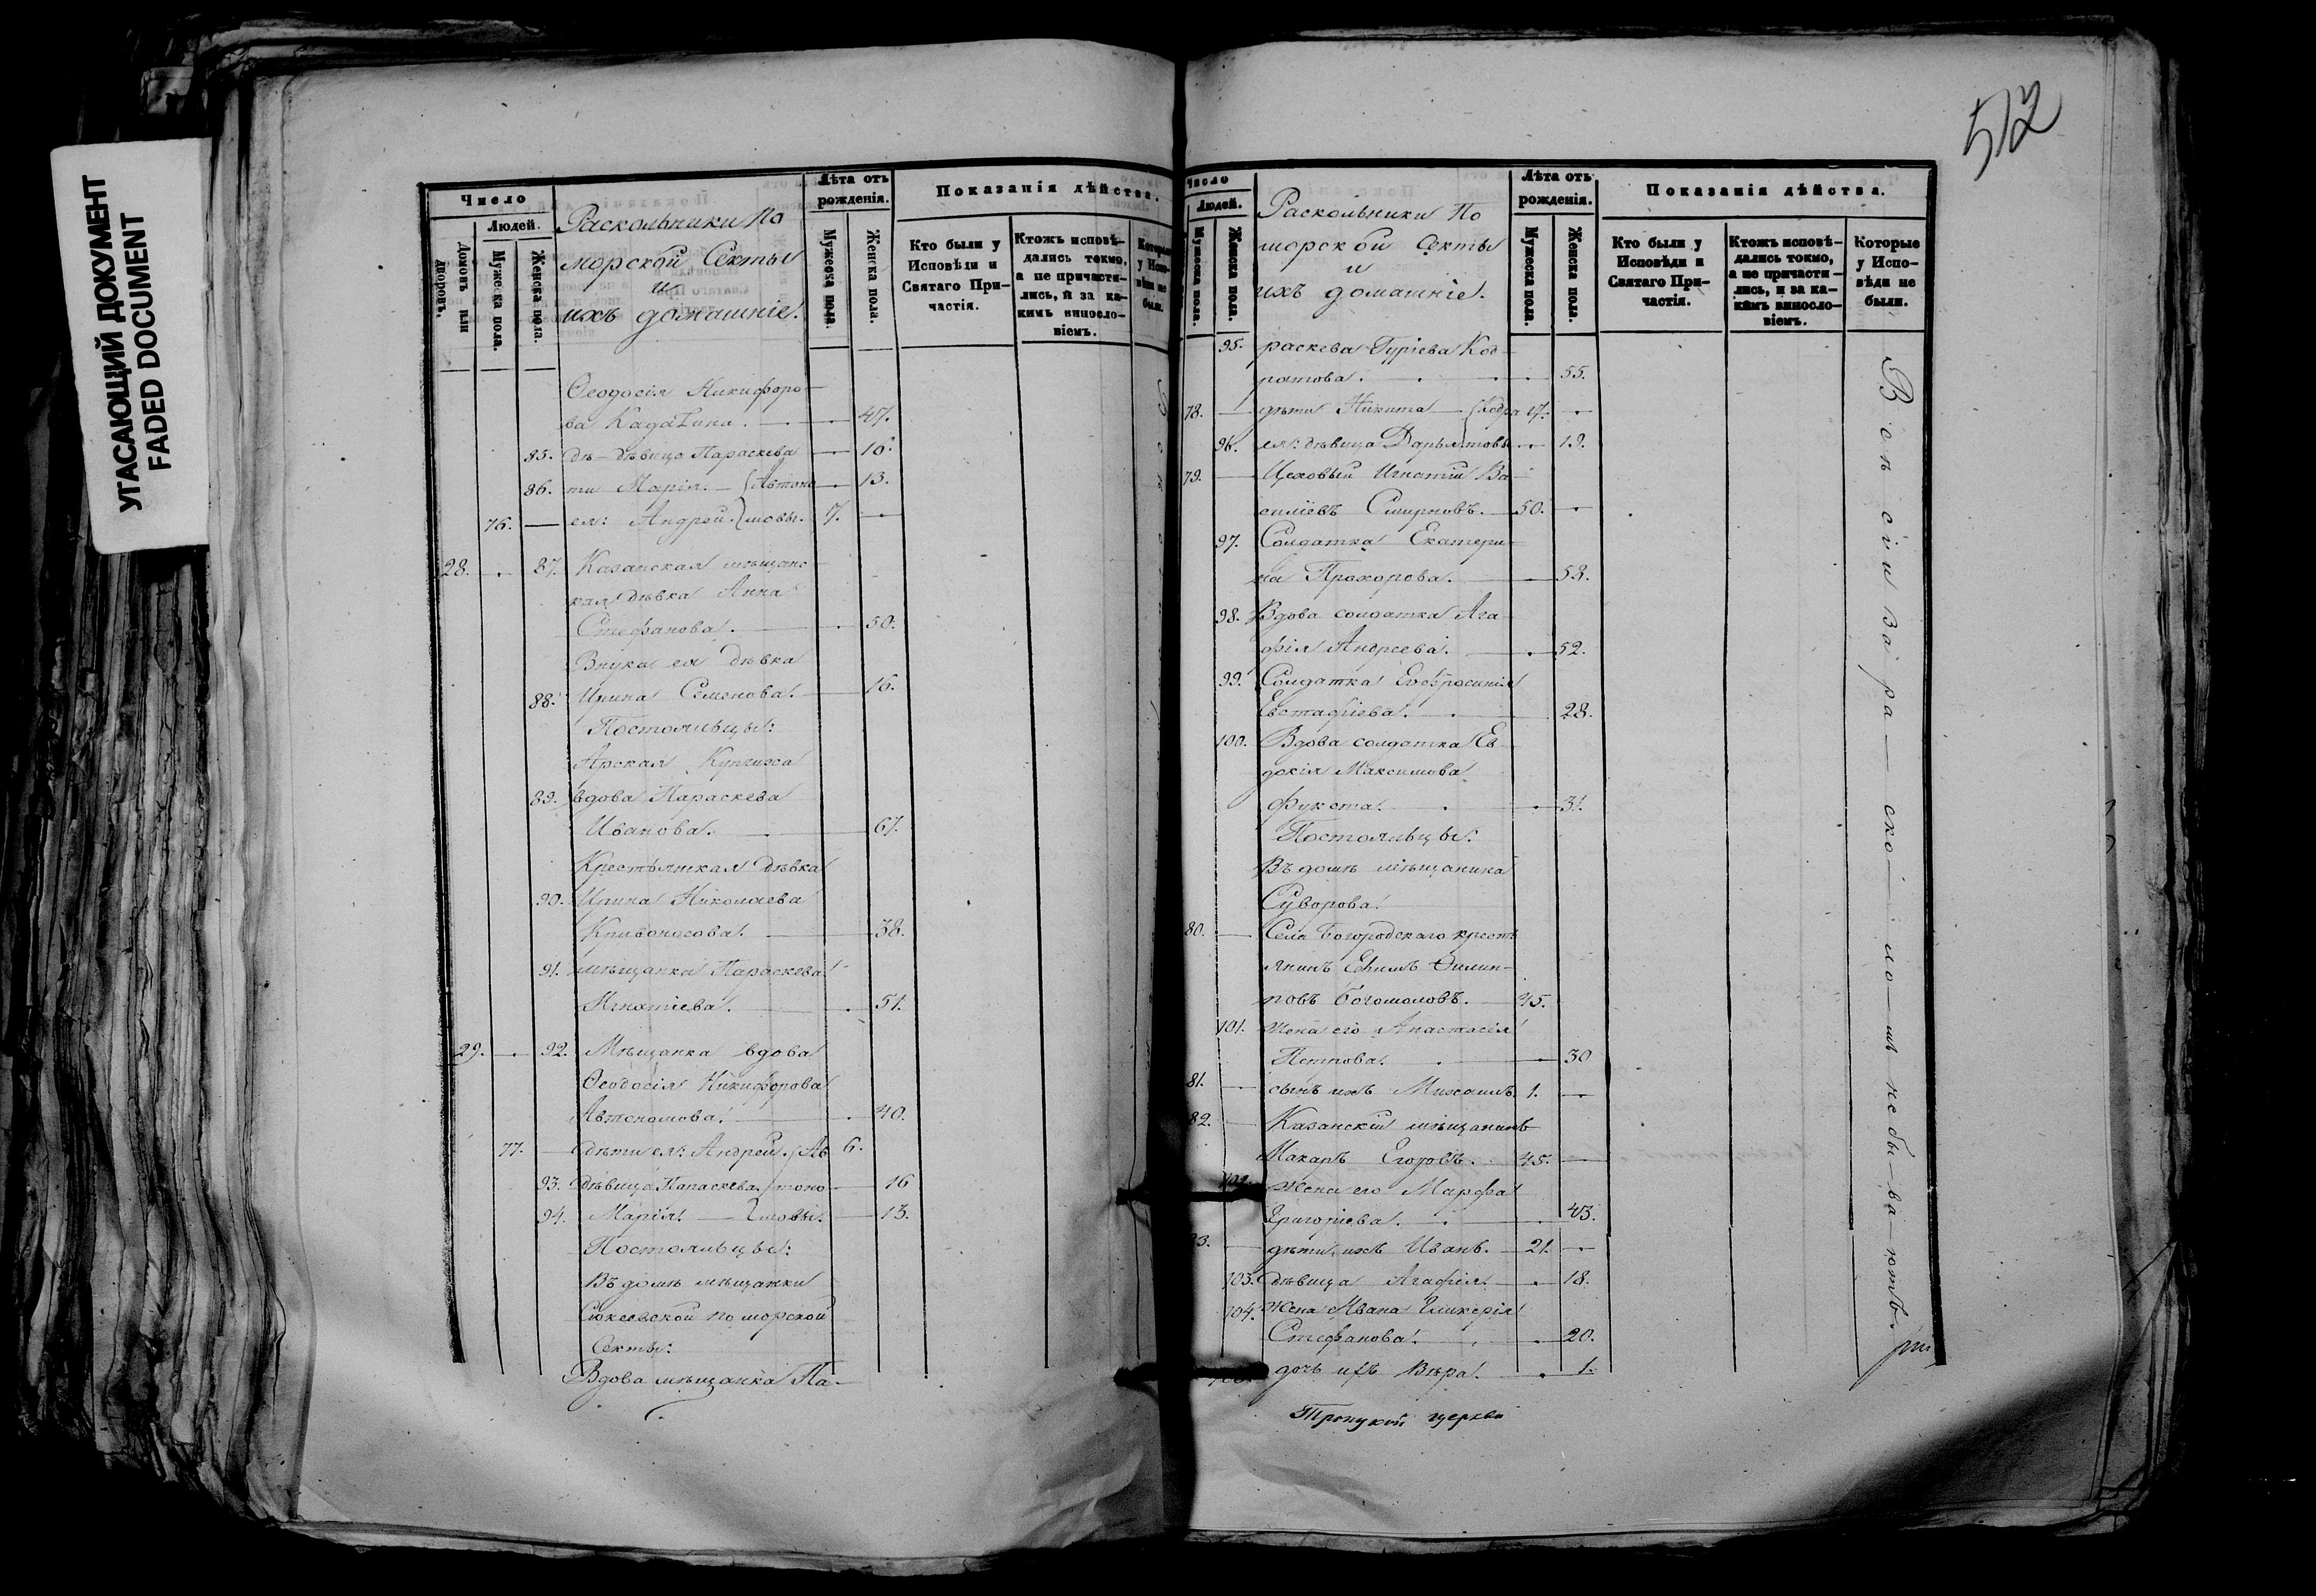 УГАСАЮЩИЙ ДОКУМЕНТ
FADED DOCUMENT
Число
Людей.
Домовъ или дворовъ.
Мужеска пола.
Женска пола.
Раскольники По
морской Секты
и
ихъ домашніе.
Лѣта отъ рожденія.
Мужеска пола.
Женска пола.
Показанія дѣйства.
Кто были у Исповѣди и Святаго Причастія.
Ктожъ исповѣдались токмо, а не причастились, и за какимъ винословіемъ.
Которые у Исповѣди не были.
Ѳеодосія Никифоро-
ва 47.
85. дѣ- дѣвица Параскева 16.
86. ти Марія. Автоно 13.
76. ея: Андрей. мовы. 7.
28. 87. Казанская мѣщанс
кая дѣвка Анна
Стефанова. 50.
Внука ея дѣвка
88. Ирина Семенова. 16.
Постояльцы:
Арская Купчиха
89. вдова Параскева
Иванова. 67.
Крестьянская дѣвка
90. Ирина Николаева
Кривоносова. 38.
91. мѣщанка Параскева
Игнатіева. 51.
29. 92. Мѣщанка вдова
Ѳеодосія Никифорова
Автономова. 40.
77. дѣти ея: Андрей. Ав 6.
93. дѣвица Параскева. тоно 16
94. Марія. мовы. 13.
Постояльцы:
Въ домѣ мѣщанки
Сюкеевской поморской
Секты:
Вдова мѣщанка Па-
512
Число
Людей.
Мужеска пола.
Женска пола.
Раскольники По
морской Секты
и
ихъ домашніе.
Лѣта отъ рожденія.
Мужеска пола.
Женска пола.
Показанія дѣйства.
Кто были у Исповѣди и Святаго Причастія.
Ктожъ исповѣдались токмо, а не причастились, и за какимъ винословіемъ.
Которые у Исповѣди не были.
95. раскева Гуріева Код-
ратова. 55.
78. дѣти Никита Кодра 17.
96. ея: дѣвица Дарья товы 19.
79. Цеховый Игнатій Ва-
силіевъ Смирновъ. 50.
97. Солдатка Екатери-
на Прохорова. 53.
98. Вдова солдатка Ага-
фія Андреева. 52.
99. Солдатка Евфросинія
Евстафіева. 28.
100. Вдова солдатка Ев-
докія Максимова
31.
Постояльцы:
Въ домѣ мѣщанина
Суворова.
80. Села Богородскаго кресть
янинъ Ефимъ Филип-
повъ Богомоловъ. 45.
101. жена его Анастасія
Петрова. 30
81. сынъ ихъ Михаилъ 1.
82. Казанскій мѣщанинъ
Макаръ Егоровъ. 45.
102. жена его Марфа
Григоріева. 43.
83. дѣти ихъ Иванъ. 21.
103. дѣвица Агафія. 18.
104. жена Ивана Гликерія
Стефанова. 20.
дочь ихъ Вѣра. 1.
Троицкой церкви
Всѣ сіи за ра-ско-ло-мъ не бы-ва-ютъ.